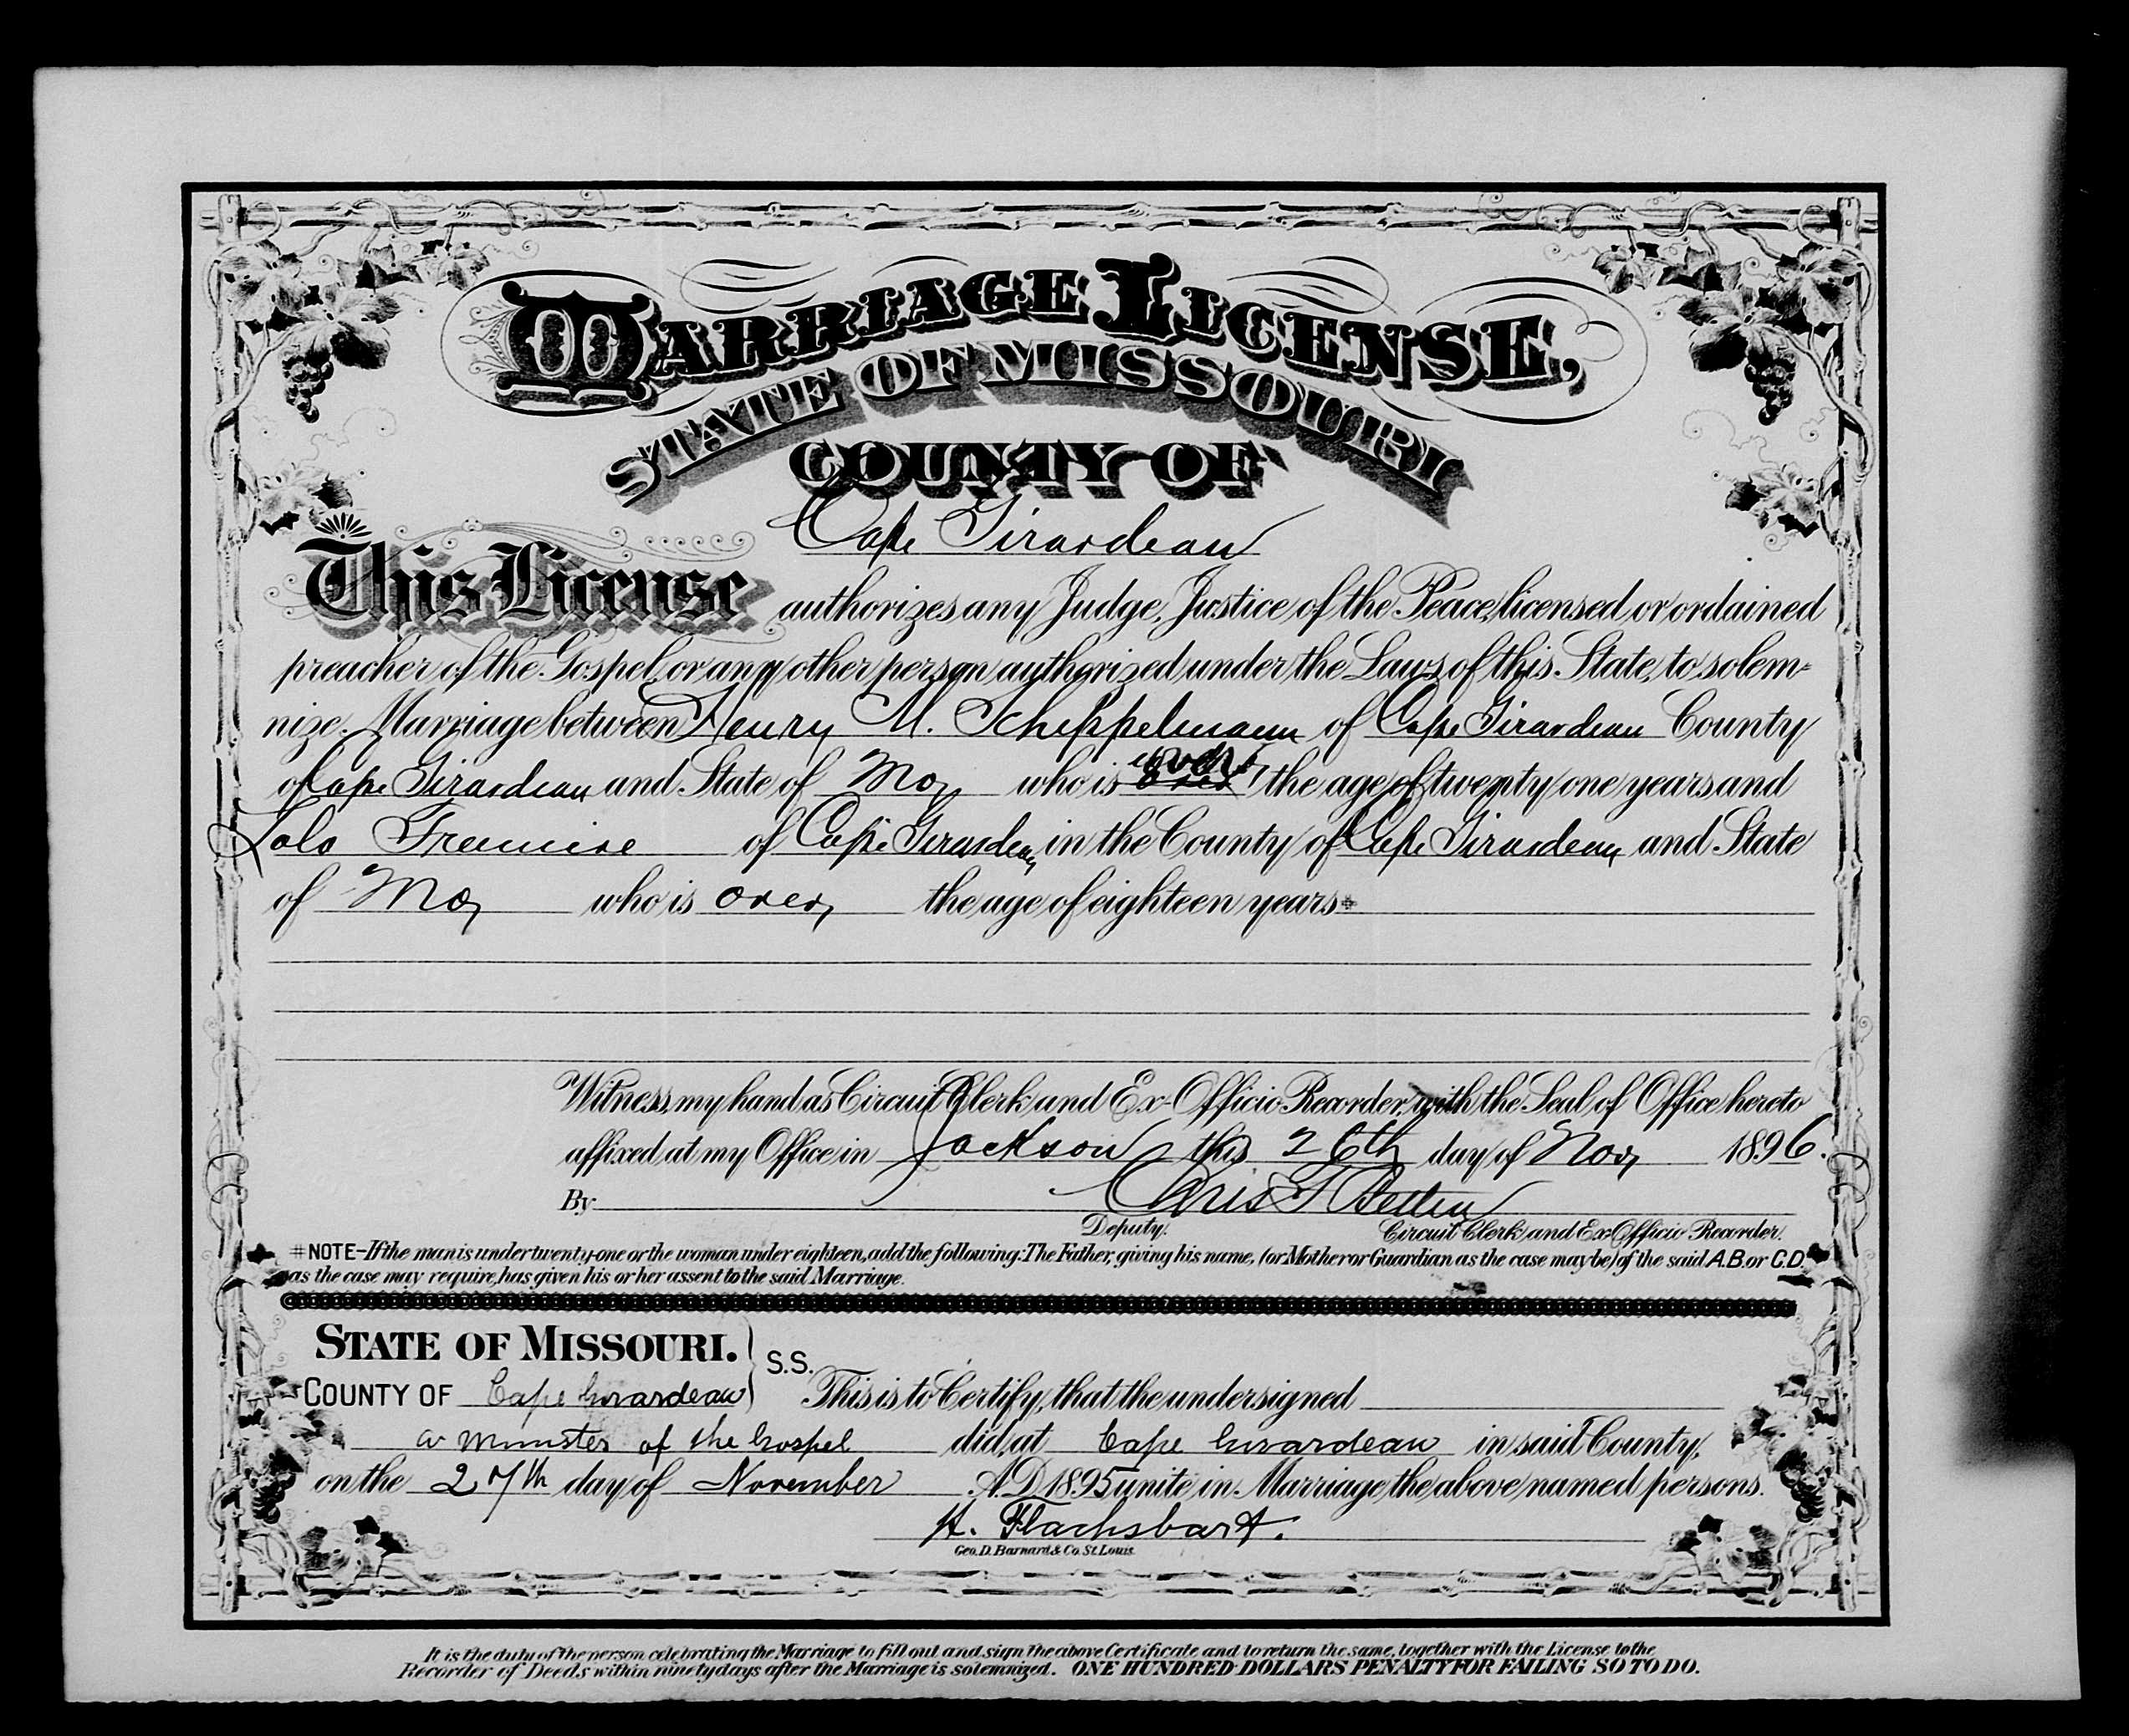 MARRIAGE LICENSE,
STATE OF MISSOURI
COUNTY OF
Cape Girardeau
This License authorizes any Judge, Justice of the Peace, licensed or ordained
preacher of the Gospel, or any other person authorized under the Laws of this State, to solem-
nize Marriage between Henry M. Scheppelmann of Cape Girardeau County
of Cape Girardeau and State of Mo who is the age of twenty one years and
of Cape Girardeau in the County of Cape Girardeau and State
of Mo who is over the age of eighteen years
Witness, my hand as Circuit Clerk and Ex-Officio Recorder, with the Seal of Office hereto
affixed at my Office in Jackson this 26th day of Nov 1896.
By Chris F
Deputy. Circuit Clerk and Ex-Officio Recorder.
NOTE-If the man is under twenty-one or the woman under eighteen, add the following: The Father, giving his name, (or Mother or Guardian as the case may be) of the said A.B. or C.D.
as the case may require, has given his or her assent to the said Marriage.
STATE OF MISSOURI. } S.S.
COUNTY OF Cape Girardeau This is to Certify, that the undersigned
a Minister of the Gospel did, at Cape Girardeau in said County,
on the 27th day of November A.D. 1895 unite in Marriage the above named persons.
H. Flachsbart.
Geo. D. Barnard & Co. St. Louis
It is the duty of the person celebrating the Marriage to fill out and sign the above Certificate and to return the same, together with the License to the
Recorder of Deeds within ninety days after the Marriage is solemnized. ONE HUNDRED DOLLARS PENALTY FOR FAILING SO TO DO.